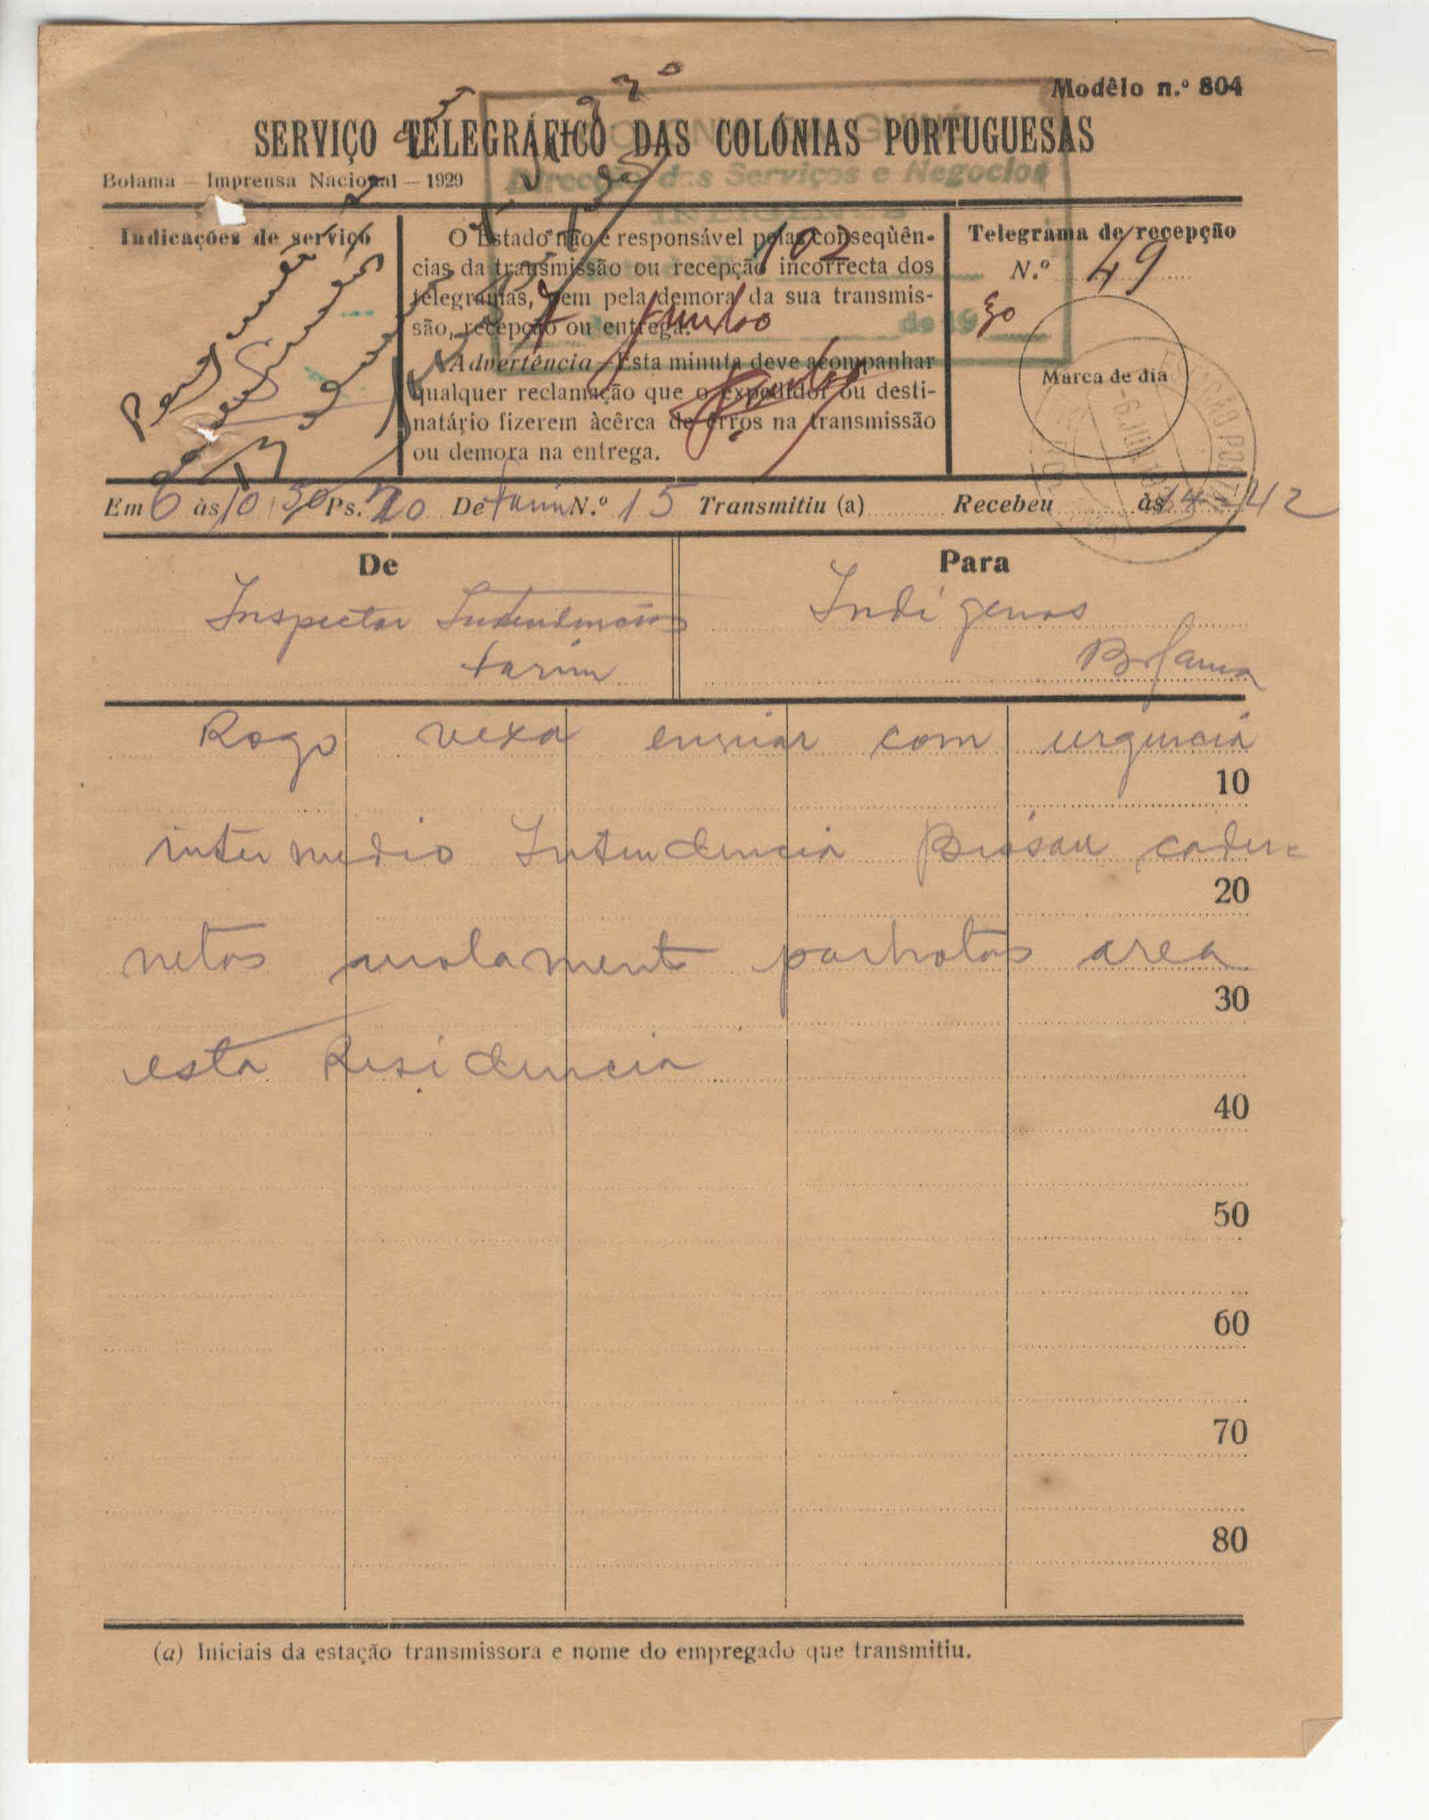 Modêlo n.º 804
SERVIÇO TELEGRÁFICO DAS COLÓNIAS PORTUGUESAS
Bolama — Imprensa Nacional — 1929
Direcção dos Serviços e Negocios
INDIGENAS
Indicações de serviço
O Estado não é responsável pelas conseqùên-
cias da transmissão ou recepção incorrecta dos
telegramas, nem pela demora da sua transmis-
são, recepção ou entrega.
Advertência—Esta minuta deve acompanhar
qualquer reclamação que o expedidor ou desti-
natário fizerem àcêrca de erros na transmissão
ou demora na entrega.
102
7 Junho de 1930
Telegrama de recepção
N.º 49
Marca de dia
Em 6 às 10,30 Ps. 20 De Farim N.º 15 Transmitiu (a) Recebeu às 14-42
De
Para
Inspector
Indigenas
Farim
Bolama
Rogo vexa enviar com urgencia
10
intermedio Intendencia Bissau cader-
20
netas arolamento palhotas area
30
esta Residencia
40
50
60
70
80
(a) Iniciais da estação transmissora e nome do empregado que transmitiu.